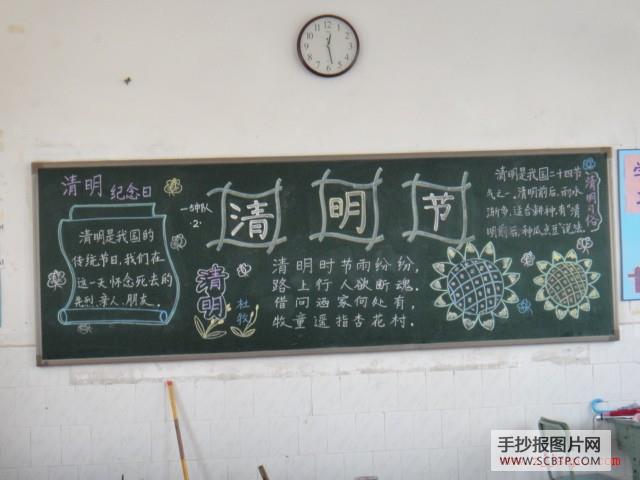 清明 纪念日
清明是我国的
传统节日,我们在
这一天怀念死去的
先烈、亲人、朋友。
一中队
·2·
清明节
清明
杜牧
清明时节雨纷纷,
路上行人欲断魂。
借问酒家何处有,
牧童遥指杏花村.
清明是我国二十四节
气之一。清明前后,雨水
渐巾,适合耕种,有"清
明前后,种瓜点豆"说法。
清明
手抄报图片网
WWW.SCBTP.COM